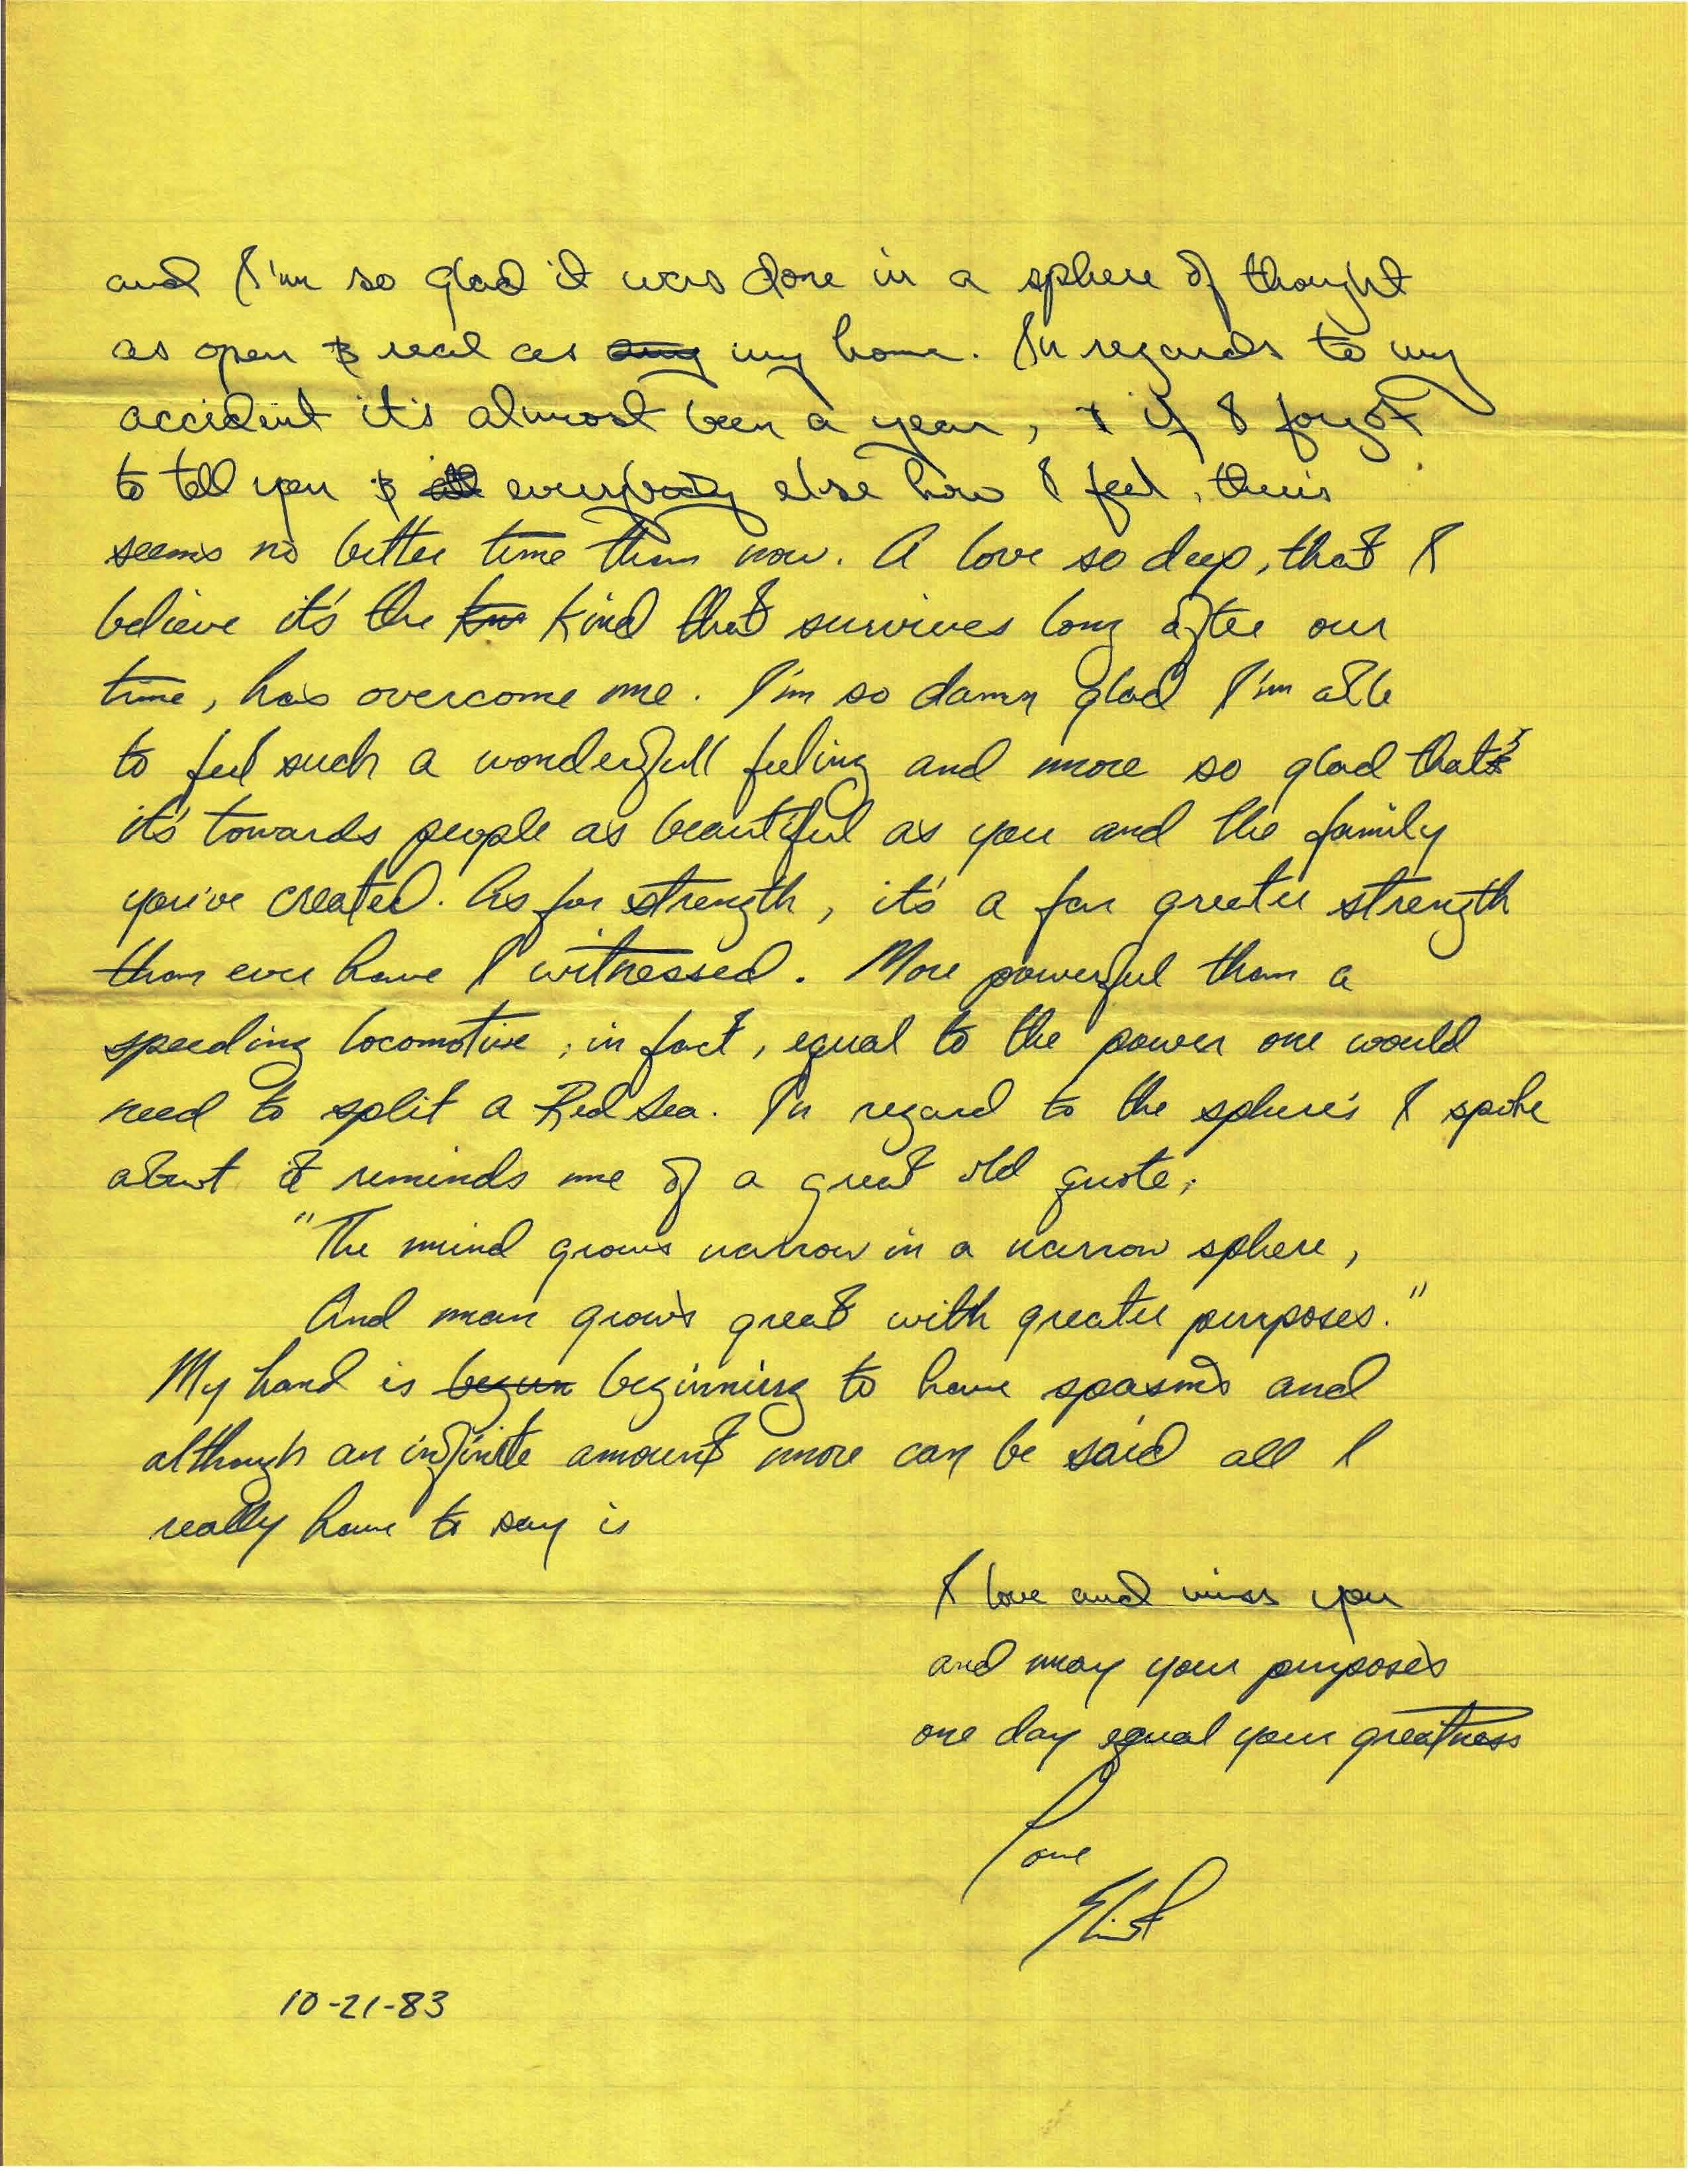 and I'm so glad it was done in a sphere of thought
as open & real as any my home. In regards to my
accident it's almost been a year, & if I forgot
to tell you & all everybody else how I feel, theirs
seems no better time than now. A love so deep, that I
believe it's the kin kind that survives long after our
time, has overcome me. I'm so damn glad I'm able
to feel such a wonderfull feeling and more so glad that
it's towards people as beautiful as you and the family
you've created. As for strength, it's a far greater strength
than ever have I witnessed. More powerful than a
speeding locomotive, in fact, equal to the power one would
need to split a Red Sea. In regard to the sphere's I spoke
about it reminds me of a great old quote,
"The mind grows narrow in a narrow sphere,
And man grows great with greater purposes."
My hand is begun beginning to have spasms and
although an infinite amount more can be said all I
really have to say is
I love and miss you
and may your purposes
one day equal your greatness
Love
10-21-83